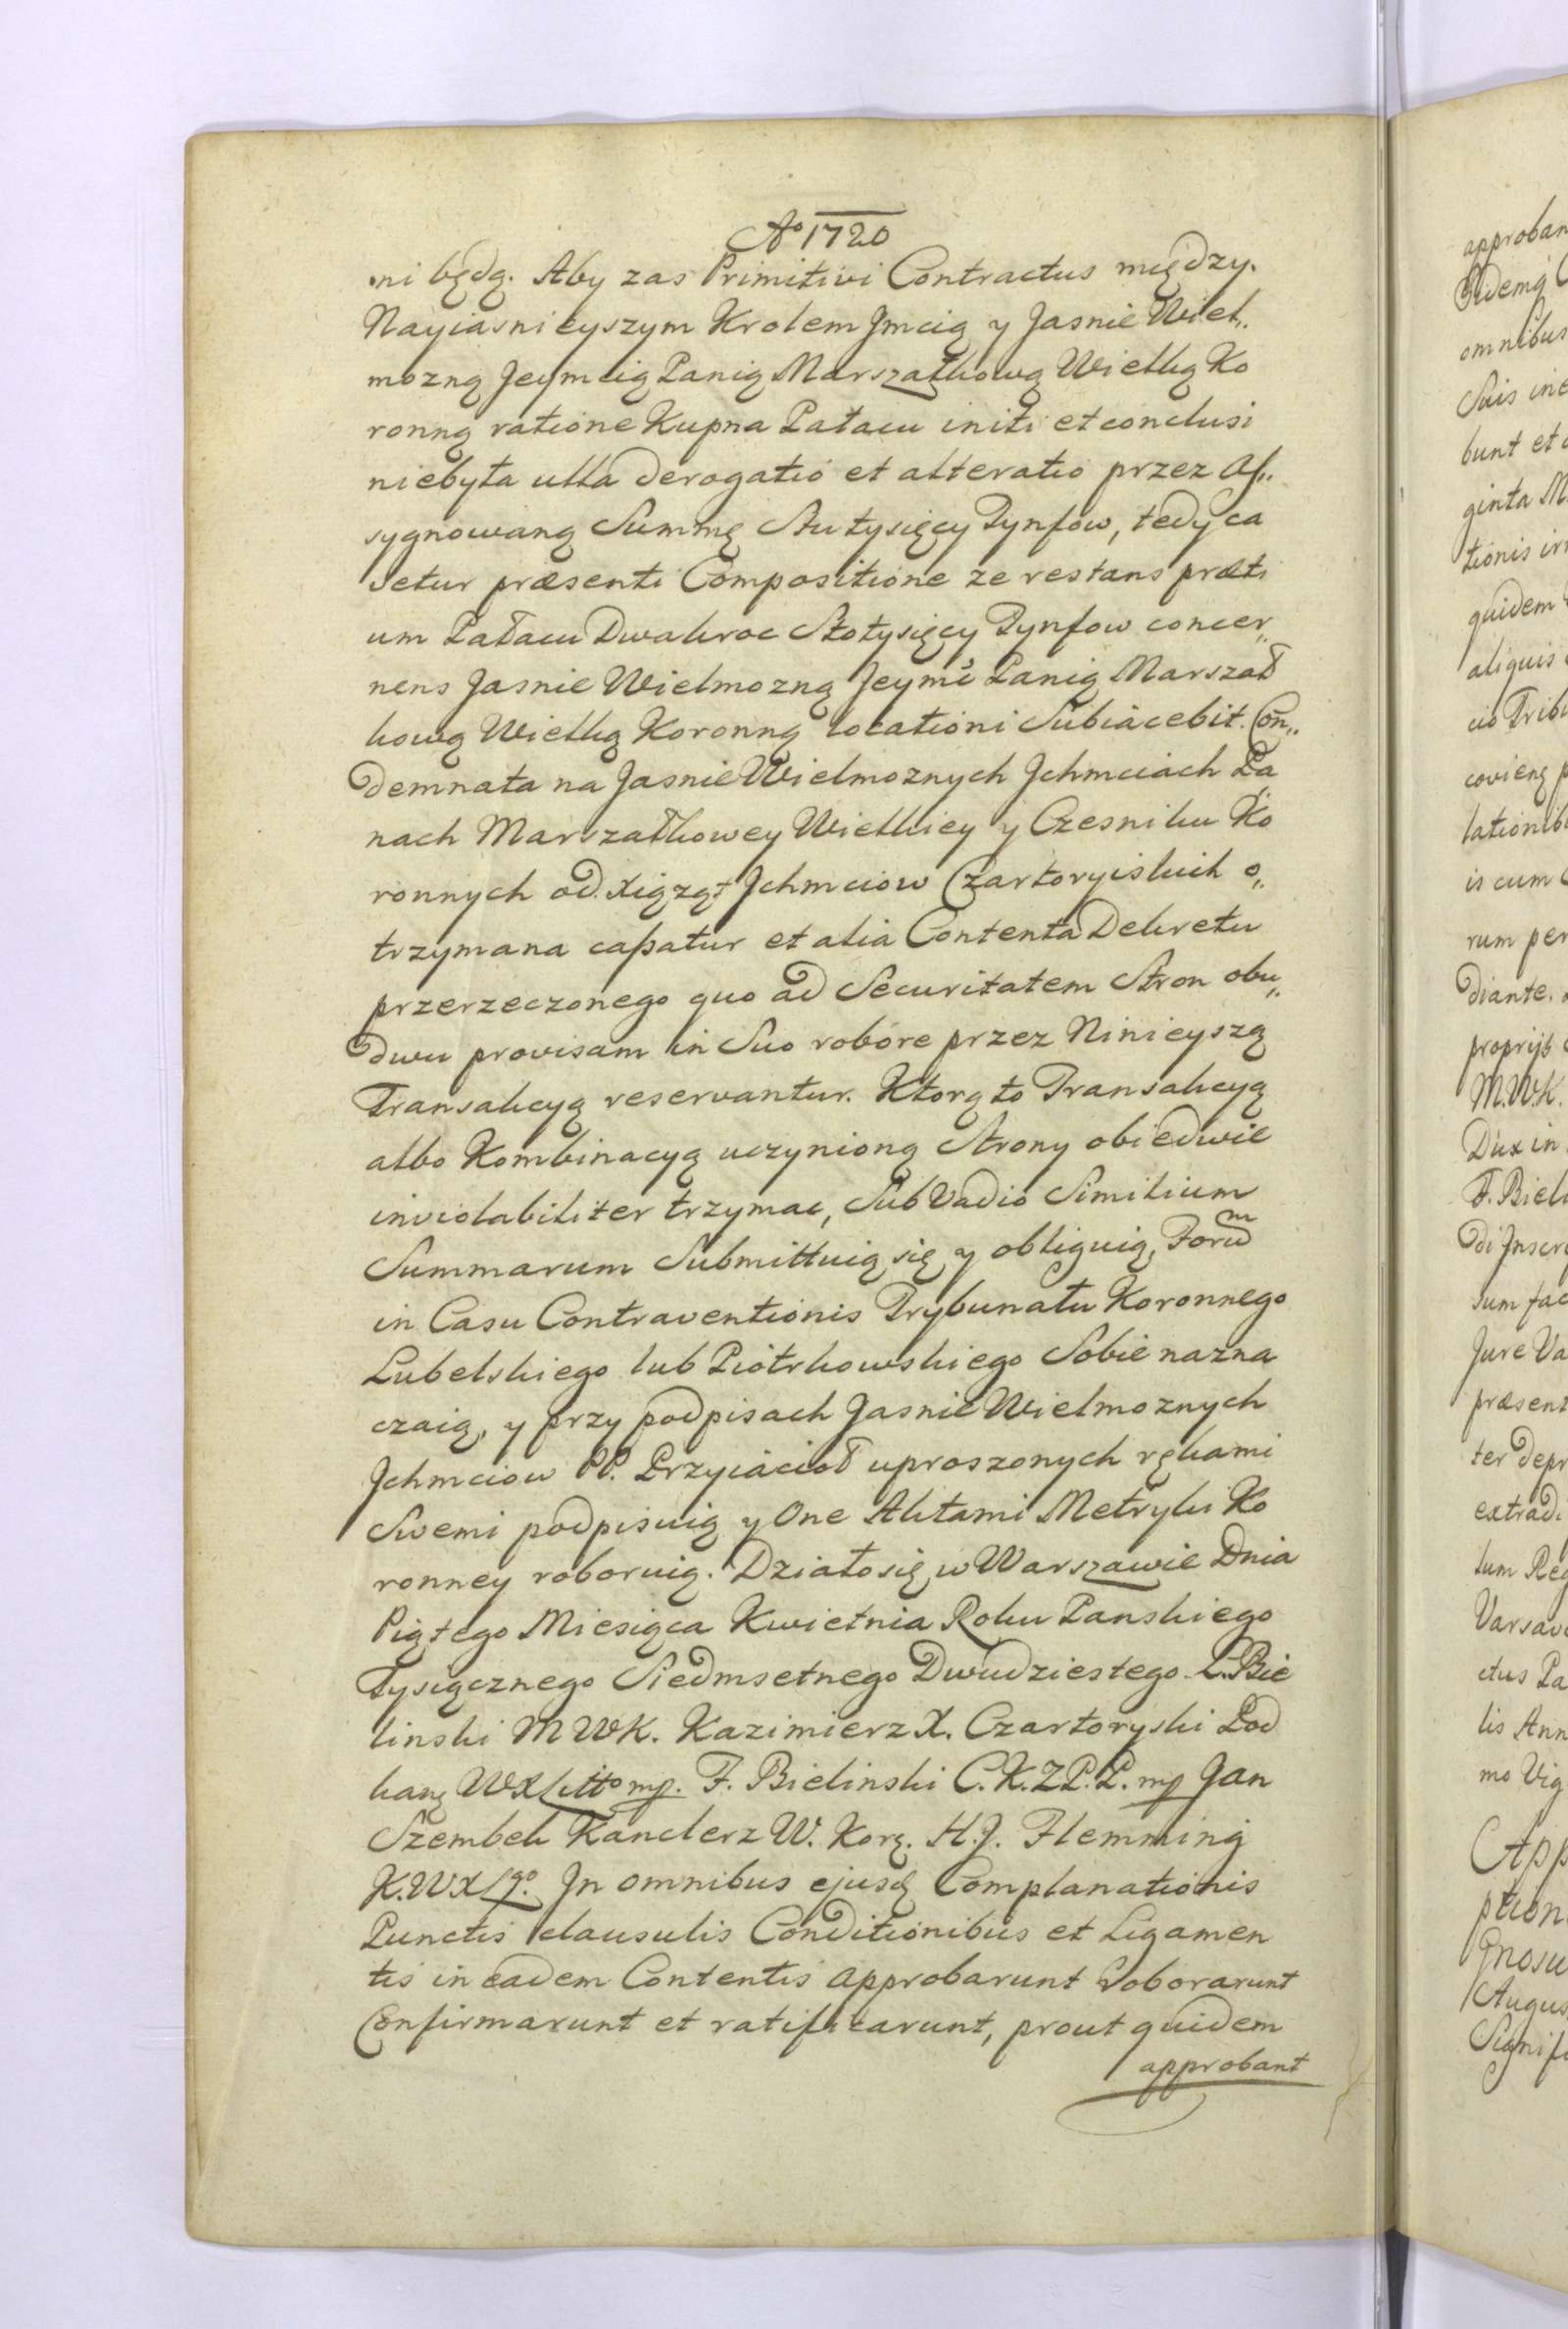 Aº 1720
ni będą. Aby zas Primitivi Contractus między.
Nayiasnieyszym Krolem Jmcią y Jasnie Wiel„
mozną Jeymcią Panią Marszałkową Wielką Ko
ronną ratione Kupna Pałacu initi et conclusi
niebyła ulla derogatio et alteratio przez As„
sygnowaną Summę Stu tysięcy Tynfow, tedy ca
vetur præsenti Compositione ze restans præti
um Pałacu Dwakroc Stotysięcy Tynfow concer„
nens Jasnie Wielmozną Jeymć Panią Marszał
kową Wielką Koronną locationi Subiacebit. Con„
demnata na Jasnie Wielmoznych Jchmciach Pa
nach Marszałkowey Wielkiey y Czesniku Ko
ronnych od Xiążąt Jchmciow Czartoryiskich o„
trzymana cassatur et alia Contenta Dekretu
przerzeczonego quo ad Securitatem Stron obu„
dwu provisam in Suo robore przez Ninieyszą
Transakcyą reservantur. Ktorą to Transakcyą
albo Kombinacyą uczynioną Strony obiedwie
inviolabiliter trzymac, Sub Vadio Similium
Summarum Submittuią się y obliguią, Forum
in Casu Contraventionis Trybunału Koronnego
Lubelskiego lub Piotrkowskiego Sobie nazna
czaią, y przy podpisach Jasnie Wielmoznych
Jchmciow PP. Przyiacioł uproszonych rękami
Swemi podpisuią y One Aktami Metryki Ko
ronney roboruią. Działo się w Warszawie Dnia
Piątego Miesiąca Kwietnia Roku Panskiego
Tysiącznego Siedmsetnego Dwudziestego L. Bie
linski M W K. Kazimierz X. Czartoryski Pod
kanę W X Litto mp. F. Bielinski C. K. Z P. P. mp Jan
Szembek Kanclerz W. Korę. H. J. Flemming
K. W X Lgo. Jn omnibus ejusdę Complanationis
Punctis clausulis Conditionibus et Ligamen
tis in eadem Contentis approbarunt roborarunt
Confirmarunt et ratificarunt, prout quidem
approbant
omnibus
bunt et
ginta M
tionis
quidem
aliquis
rum per
diante.
M.W.K.
Dux in
F. Bieli
sum fac
Jure Va
præsent
ter depr
extradi
tum Reg
Varsav
ctus Pa
lis Ann
mo Vig
App
ption
Augus
Signifi